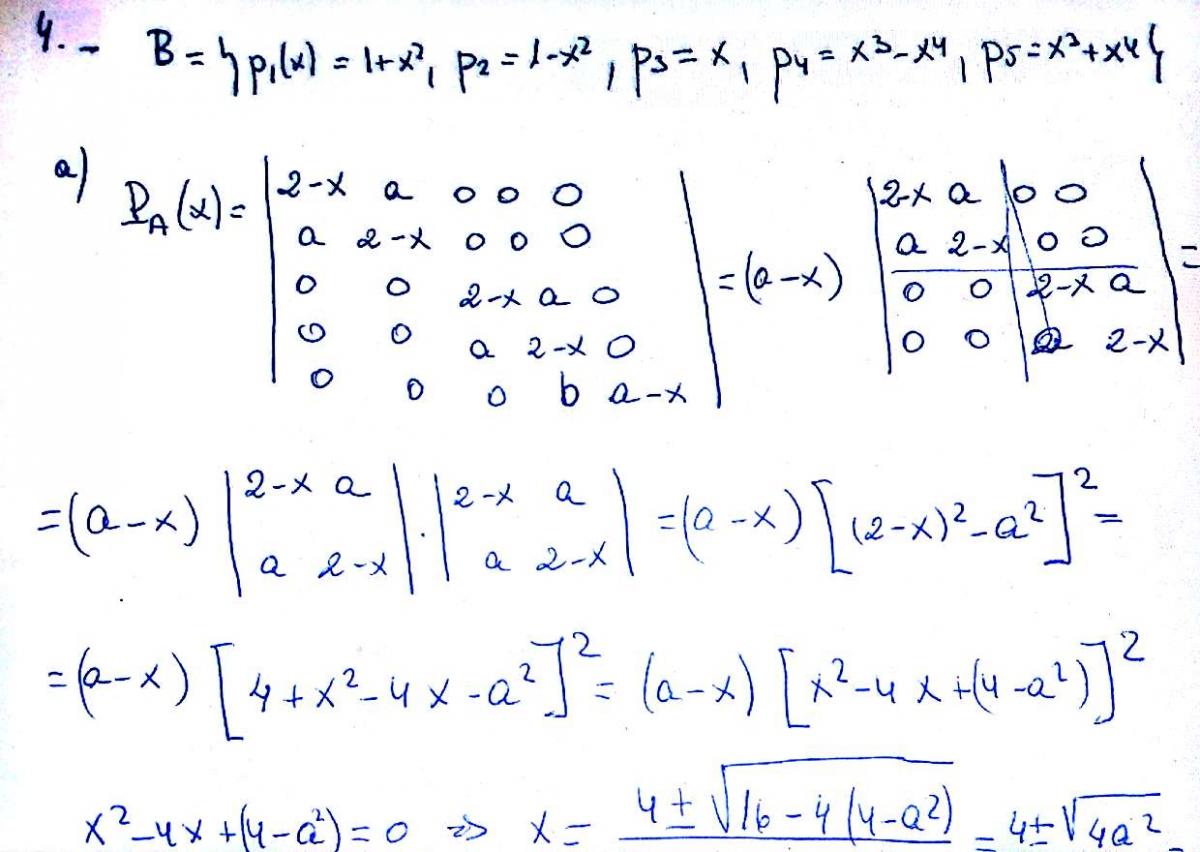 4.- B = { p₁(x) = 1+x², p₂ = 1-x², p₃ = x, p₄ = x³-x⁴, p₅ = x³+x⁴ }
a) P_A(x) = | 2-x a 0 0 0 | = (a-x) | 2-x a 0 0 | =
a 2-x 0 0 0 | a 2-x 0 0
0 0 2-x a 0 | 0 0 2-x a
0 0 a 2-x 0 | 0 0 a 2-x
0 0 0 b a-x
= (a-x) | 2-x a | · | 2-x a | = (a-x) [ (2-x)² - a² ]² =
a 2-x | a 2-x
= (a-x) [ 4 + x² - 4x - a² ]² = (a-x) [ x² - 4x + (4-a²) ]²
x² - 4x + (4-a²) = 0 => x = 4 ± √16 - 4(4-a²) = 4 ± √4a²